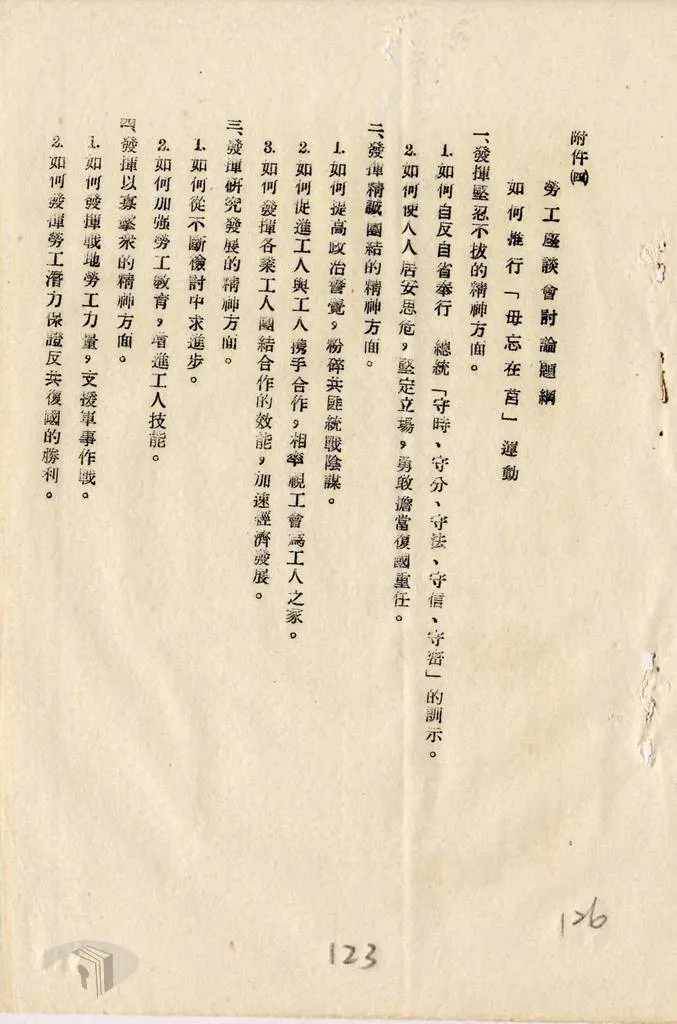 附件㈣
勞工座談會討論題綱
如何推行「毋忘在莒」運動
一、發揮堅忍不拔的精神方面。
1.如何自反自省奉行　總統「守時、守分、守法、守信、守密」的訓示。
2.如何使人人居安思危，堅定立場，勇敢擔當復國重任。
二、發揮精誠團結的精神方面。
1.如何提高政治警覺，粉碎共匪統戰陰謀。
2.如何促進工人與工人攜手合作，相率視工會為工人之家。
3.如何發揮各業工人團結合作的效能，加速經濟發展。
三、發揮研究發展的精神方面。
1.如何從不斷檢討中求進步。
2.如何加强勞工教育，增進工人技能。
四、發揮以寡擊衆的精神方面。
1.如何發揮戰地勞工力量，支援軍事作戰。
2.如何發揮勞工潛力保證反共復國的勝利。
126
123